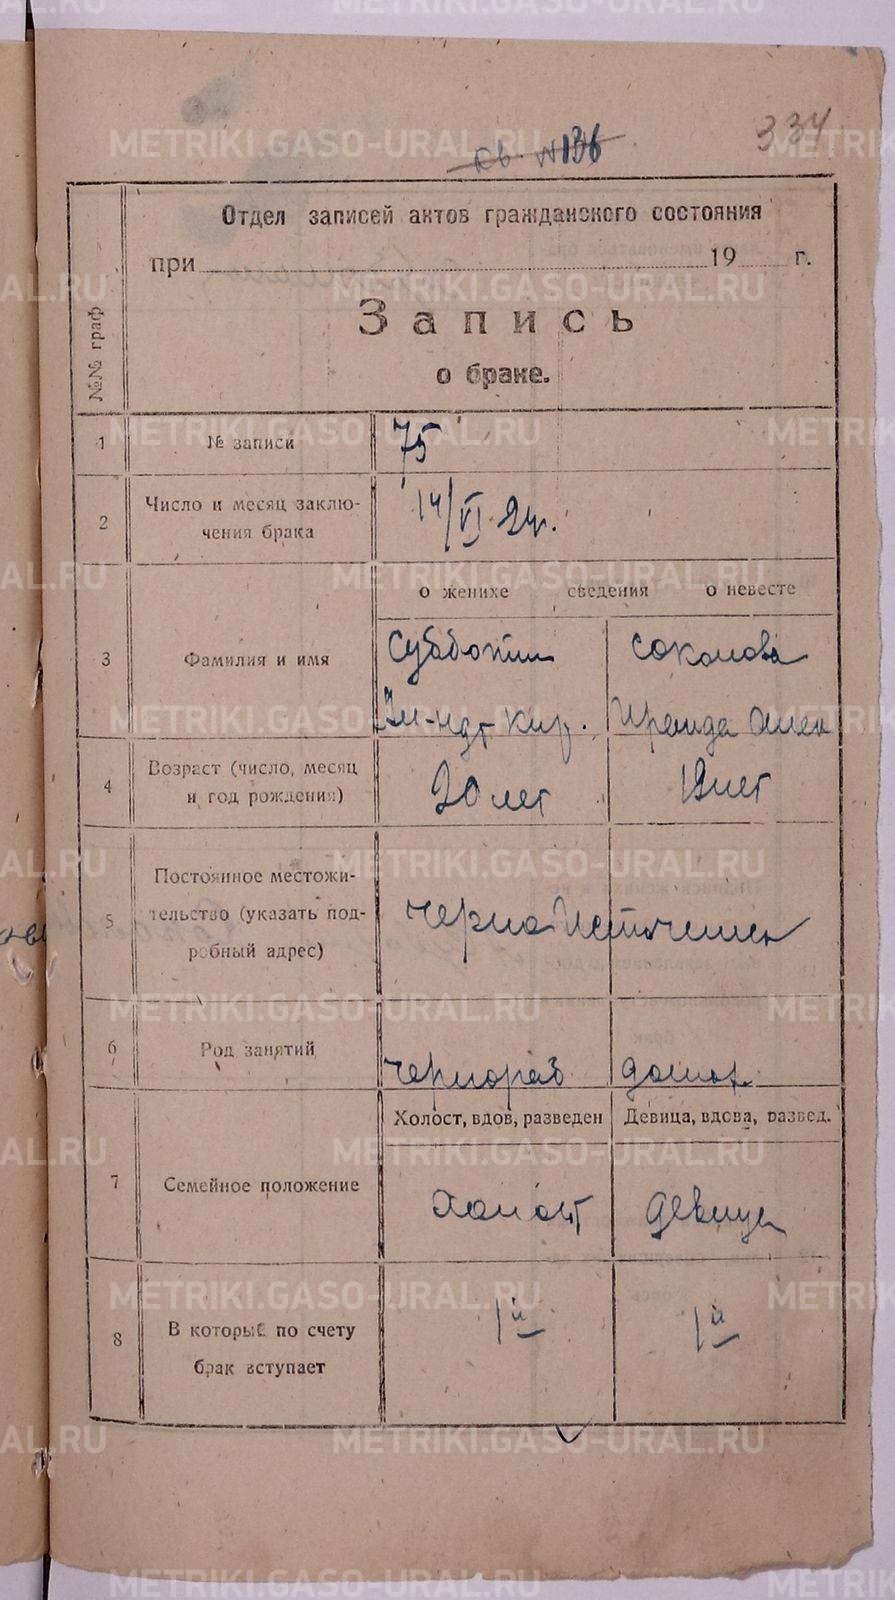 334
кв N 136
Отдел записей актов гражданского состояния
при 19 г.
Запись
о браке.
№№ граф
1 № записи 75
2 Число и месяц заклю-
чения брака 14/VI 24г.
о женихе сведения о невесте
3 Фамилия и имя Субботин Соколова
Кир. Ираида Алек
4 Возраст (число, месяц
и год рождения) 20 лет 19 лет
5 Постоянное местожи-
тельство (указать под-
робный адрес) Черно Источинск
6 Род занятий чернораб домох.
Холост, вдов, разведен Девица, вдова, развед.
7 Семейное положение холост девица
8 В который по счету
брак вступает 1й 1й
METRIKI.GASO-URAL.RU